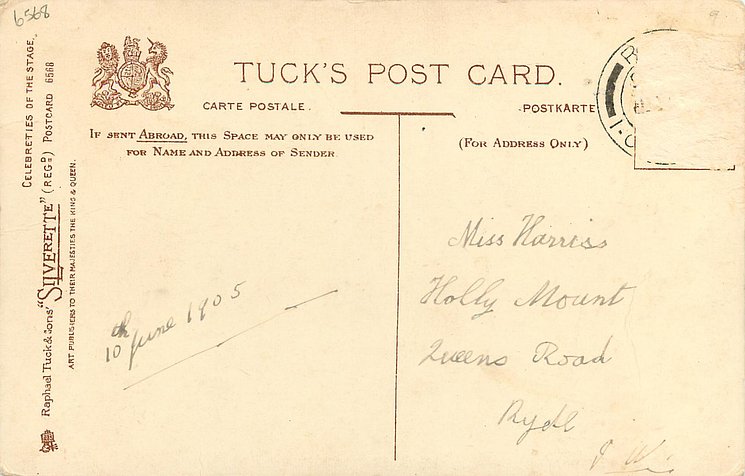 6568
TUCK'S POST CARD.
CARTE POSTALE.
POSTKARTE
IF SENT ABROAD, THIS SPACE MAY ONLY BE USED
FOR NAME AND ADDRESS OF SENDER.
(FOR ADDRESS ONLY)
CELEBRETIES OF THE STAGE.
Raphael Tuck & Sons' "SILVERETTE" (REGD) POSTCARD 6568
ART PUBLISHERS TO THEIR MAJESTIES THE KING & QUEEN.
10th June 1905
Miss Harriss
Holly Mount
Queens Road
Ryde